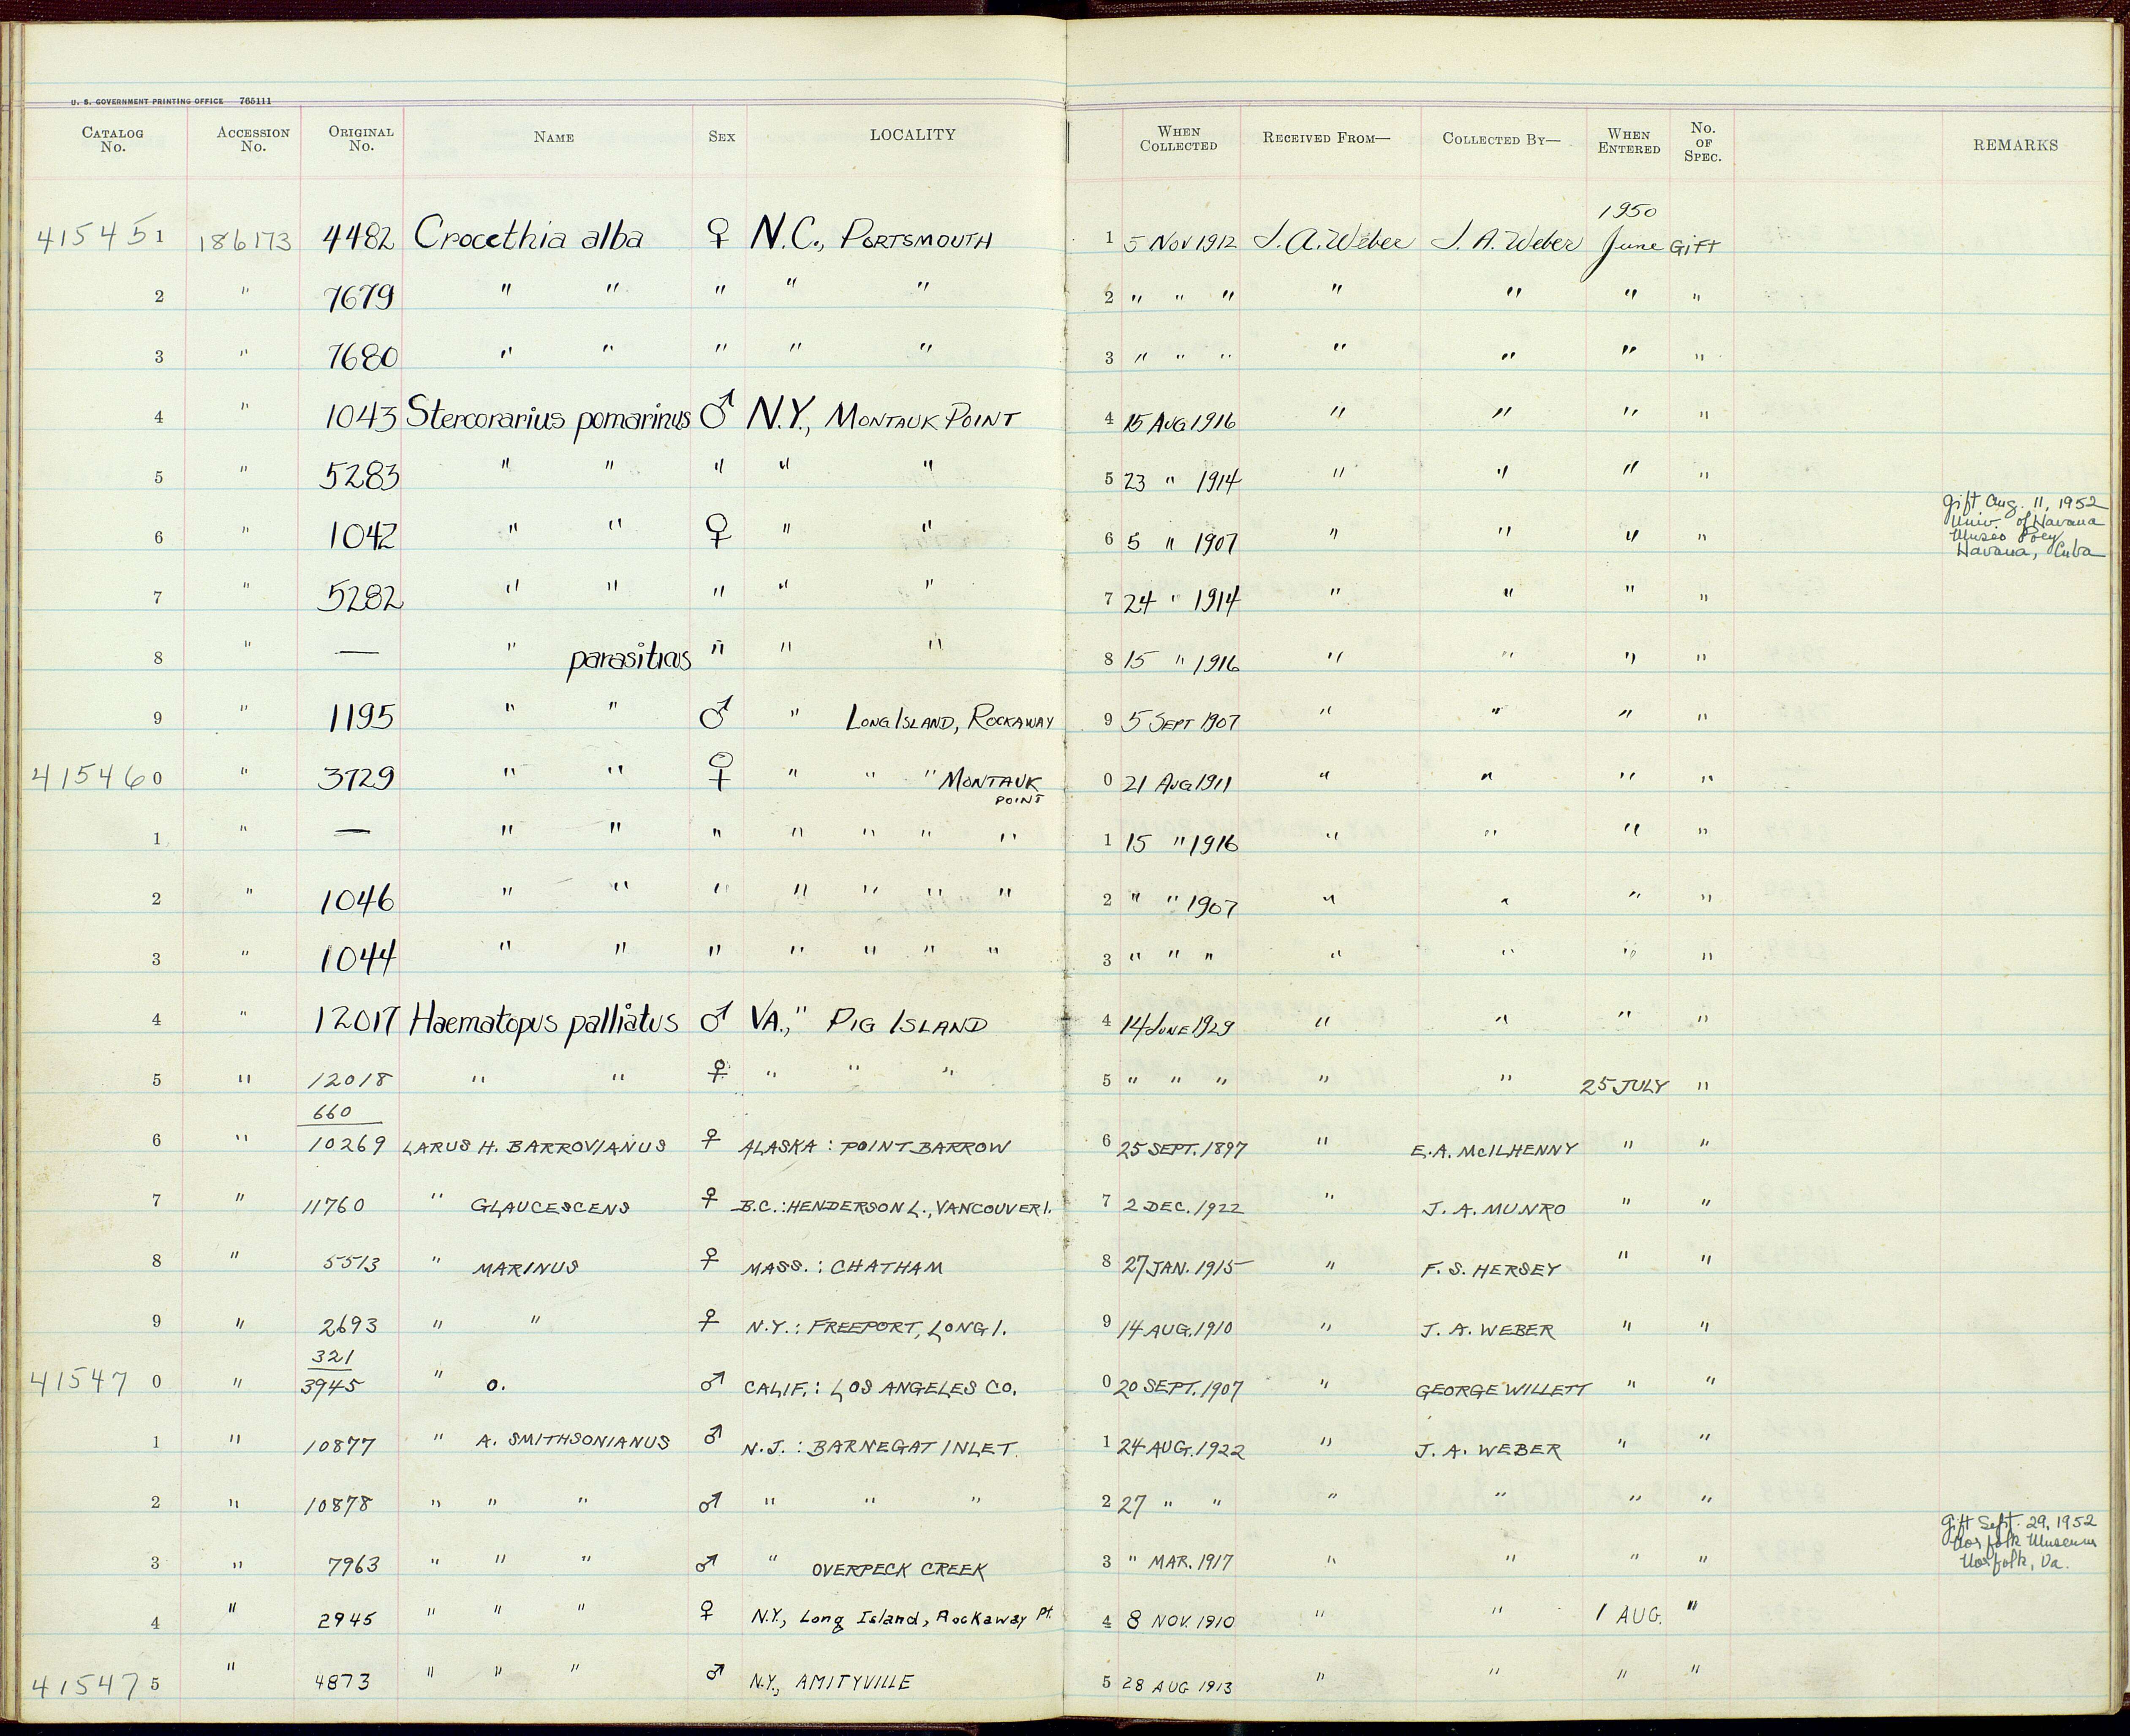 U. S. GOVERNMENT PRINTING OFFICE 765111
CATALOG No. ACCESSION No. ORIGINAL No. NAME SEX LOCALITY WHEN COLLECTED RECEIVED FROM— COLLECTED BY— WHEN ENTERED No. OF SPEC. REMARKS
1950
415451 186173 4482 Crocethia alba ♀ N.C., PORTSMOUTH 1 5 NOV 1912 J. A. Weber J. A. Weber June GIFT
2 " 7679 " " " " " 2 " " " " " " "
3 " 7680 " " " " " 3 " " " " " " "
4 " 1043 Stercorarius pomarinus ♂ N.Y., MONTAUK POINT 4 15 AUG 1916 " " " "
5 " 5283 " " " " " 5 23 " 1914 " " " "
6 " 1042 " " ♀ " " 6 5 " 1907 " " " " Gift Aug. 11, 1952
Univ. of Havana
Museo Poey
Havana, Cuba
7 " 5282 " " " " " 7 24 " 1914 " " " "
8 " — " parasiticus " " " 8 15 " 1916 " " " "
9 " 1195 " " ♂ " LONG ISLAND, ROCKAWAY 9 5 SEPT 1907 " " " "
415460 " 3729 " " ♀ " " " MONTAUK POINT 0 21 AUG 1911 " " " "
1 " — " " " " " " " 1 15 " 1916 " " " "
2 " 1046 " " " " " " " 2 " " 1907 " " " "
3 " 1044 " " " " " " " 3 " " " " " " "
4 " 12017 Haematopus palliatus ♂ VA., " PIG ISLAND 4 14 JUNE 1929 " " " "
5 " 12018 " " ♀ " " " 5 " " " " " 25 JULY "
660
6 " 10269 LARUS H. BARROVIANUS ♀ ALASKA : POINT BARROW 6 25 SEPT. 1897 " E. A. McILHENNY " "
7 " 11760 " GLAUCESCENS ♀ B.C. : HENDERSON L., VANCOUVER I. 7 2 DEC. 1922 " J. A. MUNRO " "
8 " 5513 " MARINUS ♀ MASS. : CHATHAM 8 27 JAN. 1915 " F. S. HERSEY " "
9 " 2693 " " ♀ N.Y. : FREEPORT, LONG I. 9 14 AUG. 1910 " J. A. WEBER " "
321
415470 " 3945 " O. ♂ CALIF. : LOS ANGELES CO. 0 20 SEPT. 1907 " GEORGE WILLETT " "
1 " 10877 " A. SMITHSONIANUS ♂ N.J. : BARNEGAT INLET 1 24 AUG. 1922 " J. A. WEBER " "
2 " 10878 " " " ♂ " " " 2 27 " " " " " "
3 " 7963 " " " ♂ " OVERPECK CREEK 3 " MAR. 1917 " " " " Gift Sept. 29, 1952
Norfolk Museum
Norfolk, Va.
4 " 2945 " " " ♀ N.Y., Long Island, Rockaway Pt. 4 8 NOV. 1910 " " 1 AUG. "
415475 " 4873 " " " ♂ N.Y., AMITYVILLE 5 28 AUG 1913 " " " "